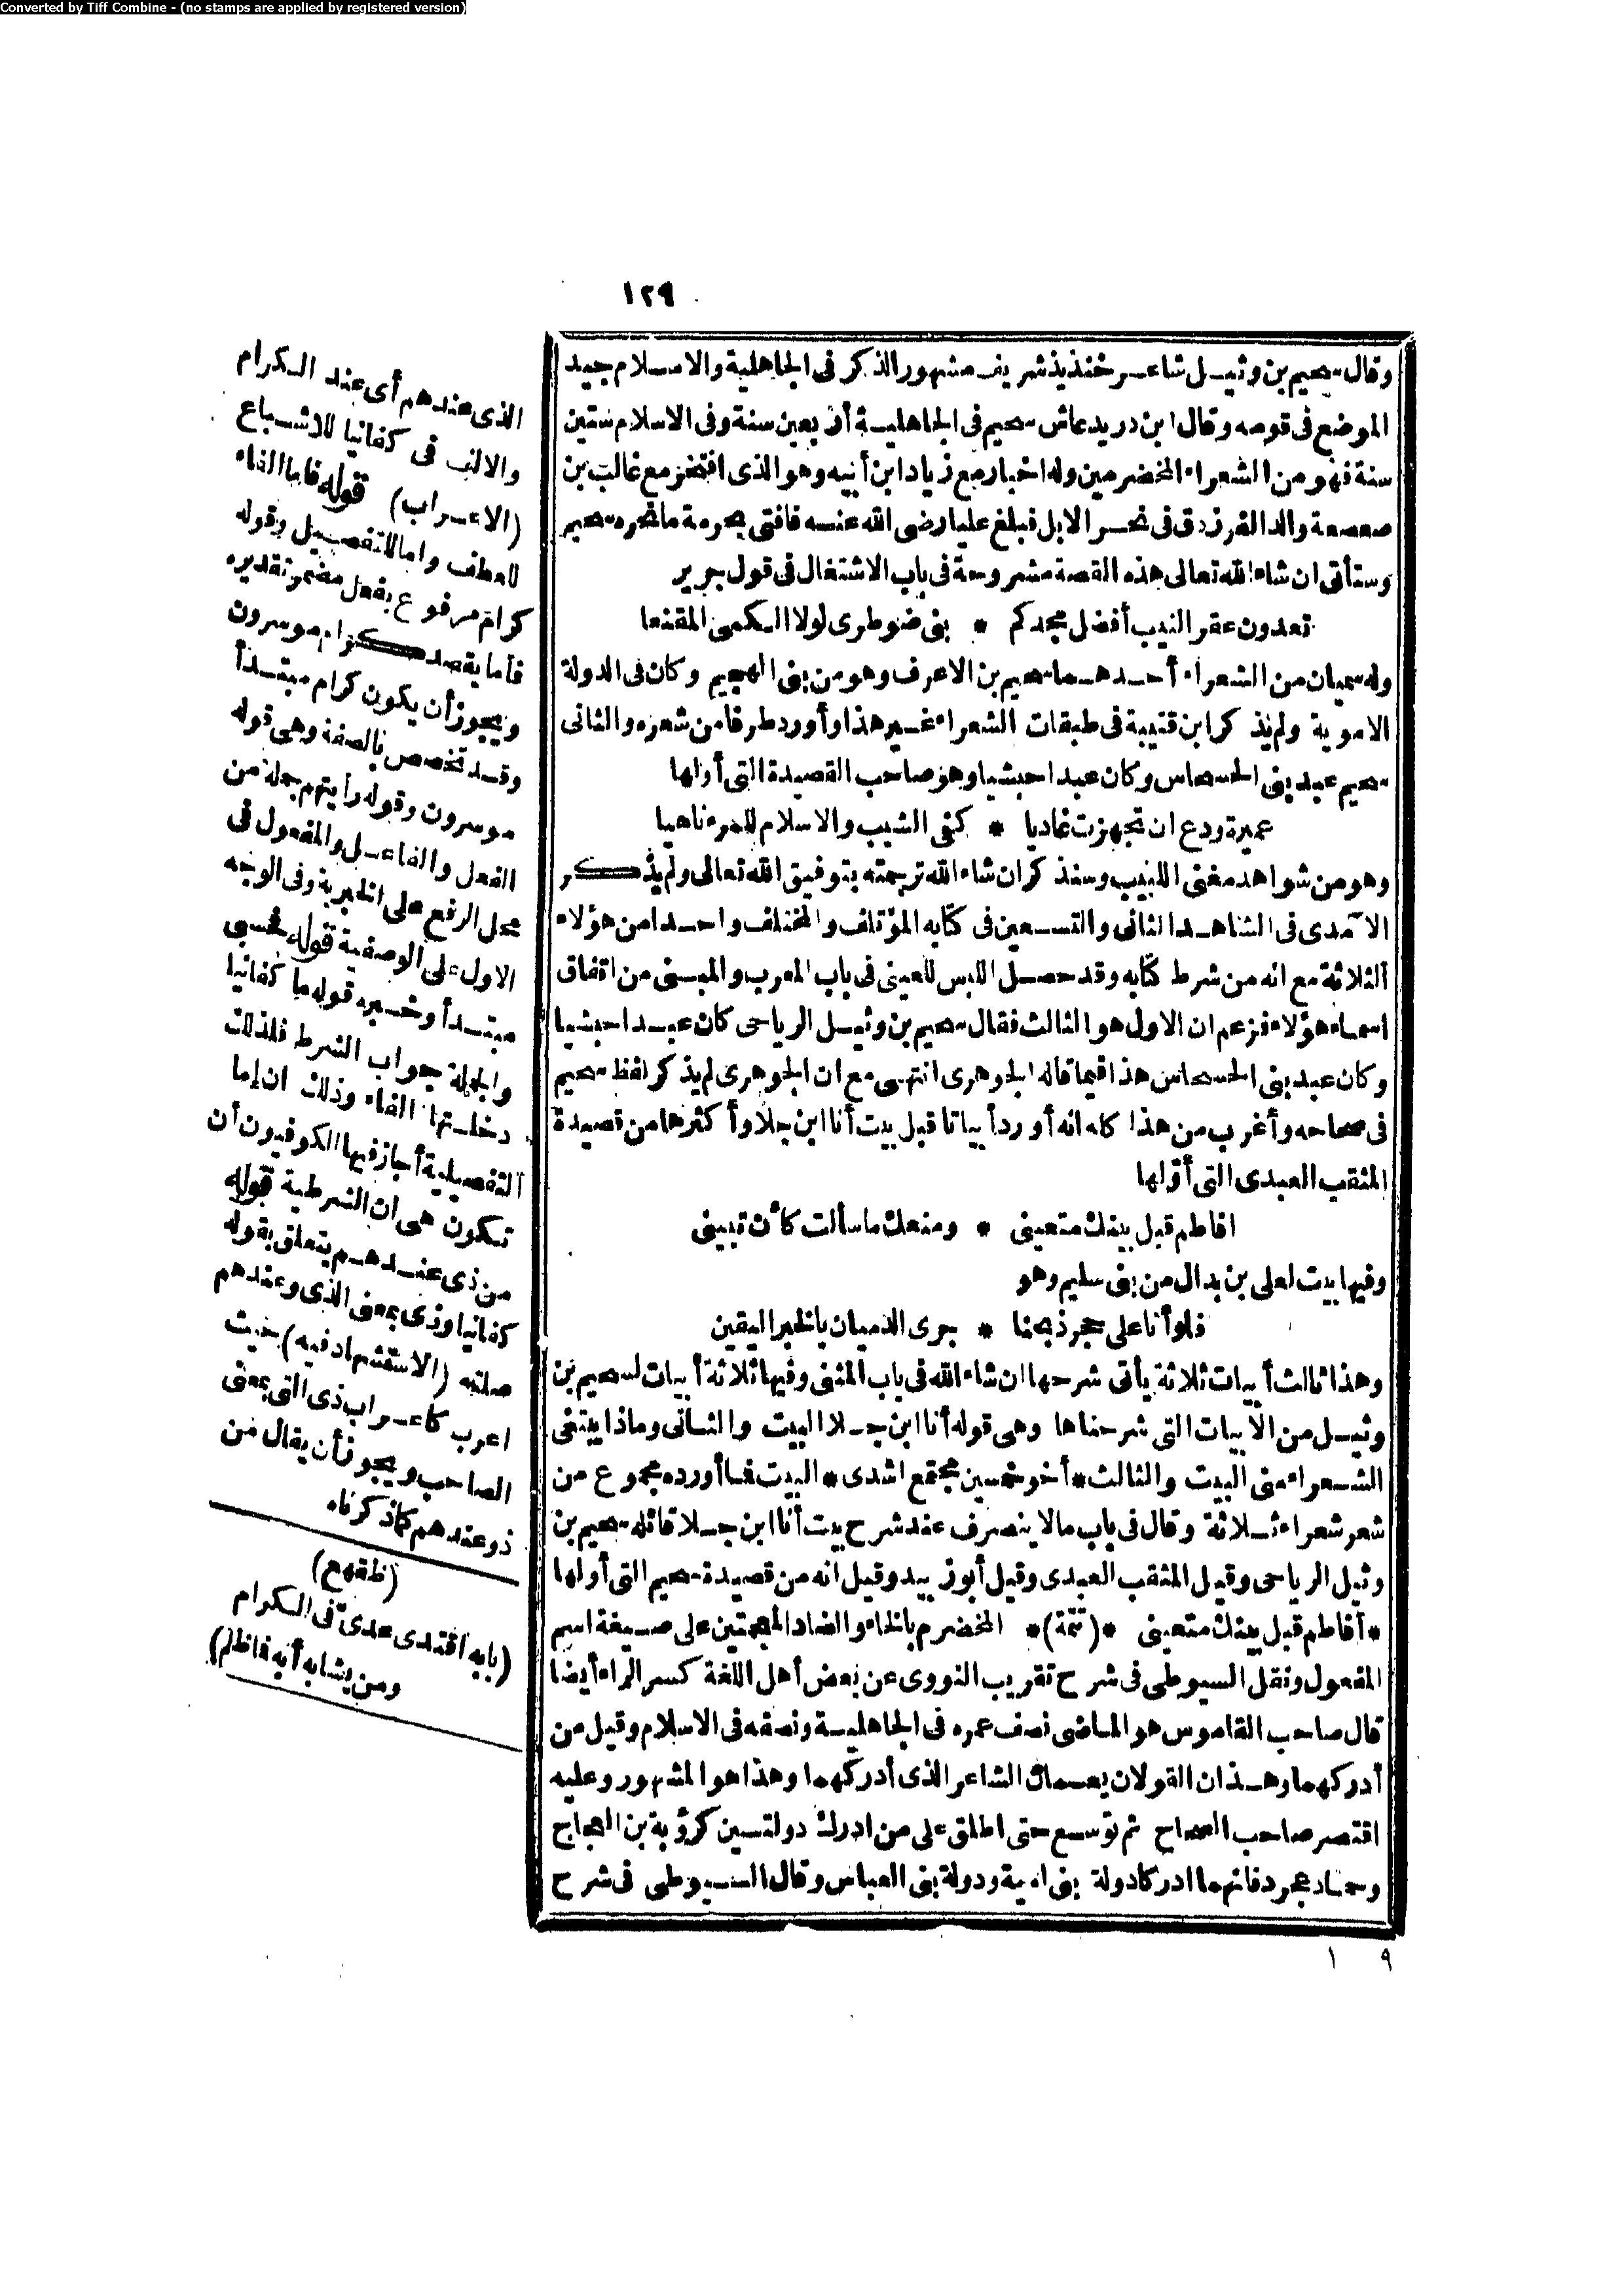 Converted by Tiff Combine - (no stamps are applied by registered version)
١٢٩
وقال سحيم بن وثيل شاعر خنذيذ شريف مشهور الذكر فى الجاهلية والاسلام جيد
الموضع فى قومه وقال ابن دريد عاش سحيم فى الجاهلية أربعين سنة وفى الاسلام ستين
سنة فهو من الشعراء المخضرمين وله اخبار مع زياد ابن أبيه وهو الذى افتخر مع غالب بن
صعصعة والد الفرزدق فى نحر الابل فبلغ عليا رضى الله عنه فافتى بحرمة ما نحره سحيم
وستأتى ان شاء الله تعالى هذه القصة مشروحة فى باب الاشتغال فى قول جرير
تعدون عقر النيب أفضل مجدكم * بنى ضوطرى لولا الكمى المقنعا
وله سميان من الشعراء أحدهما سحيم بن الاعرف وهو من بنى الهجيم وكان فى الدولة
الاموية ولم يذكر ابن قتيبة فى طبقات الشعراء غير هذا وأورد طرفا من شعره والثانى
سحيم عبد بنى الحسحاس وكان عبدا حبشيا وهو صاحب القصيدة التى أولها
عميرة ودع ان تجهزت غاديا * كفى الشيب والاسلام للمرء ناهيا
وهو من شواهد مغنى اللبيب وسنذكر ان شاء الله ترجمته بتوفيق الله تعالى ولم يذكر
الآمدى فى الشاهد الثانى والتسعين فى كتابه المؤتلف والمختلف واحدا من هؤلاء
الثلاثة مع انه من شرط كتابه وقد حصل اللبس للعينى فى باب المعرب والمبنى من اتفاق
اسماء هؤلاء فزعم ان الاول هو الثالث فقال سحيم بن وثيل الرياحى كان عبدا حبشيا
وكان عبد بنى الحسحاس هذا فيما قاله الجوهرى انتهى مع ان الجوهرى لم يذكر لفظ سحيم
فى صحاحه وأغرب من هذا كله انه أورد أبياتا قبل بيت أنا ابن جلا وأكثرها من قصيدة
المثقب العبدى التى أولها
افاطم قبل بينك متعينى * ومنعك ما سألت كأن تبينى
وفيها بيت لعلى بن بدال من بنى سليم وهو
فلو أنا على حجر ذبحنا * جرى الدميان بالخبر اليقين
وهذا ثالث أبيات ثلاثة يأتى شرحها ان شاء الله فى باب المثنى وفيها ثلاثة أبيات لسحيم بن
وثيل من الأبيات التى شرحناها وهى قوله أنا ابن جلا البيت والثانى وماذا يبتغى
الشعراء منى البيت والثالث * أخو خمسين مجتمع اشدى * البيت فما أورده مجموع من
شعر شعراء ثلاثة وقال فى باب مالا ينصرف عند شرح بيت أنا ابن جلا قائله سحيم بن
وثيل الرياحى وقيل المثقب العبدى وقيل أبو زبيد وقيل انه من قصيدة سحيم التى أولها
* أفاطم قبل بينك متعينى * (تتمة) * المخضرم بالخاء والضاد المعجمتين على صيغة اسم
المفعول ونقل السيوطى فى شرح تقريب النووى عن بعض أهل اللغة كسر الراء أيضا
قال صاحب القاموس هو الماضى نصف عمره فى الجاهلية ونصفه فى الاسلام وقيل من
أدركهما وهذان القولان يعمان الشاعر الذى أدركهما وهذا هو المشهور وعليه
اقتصر صاحب الصحاح ثم توسع حتى اطلق على من ادرك دولتين كرؤبة بن العجاج
وحماد عجرد فانهما ادركا دولة بنى امية ودولة بنى العباس وقال السيوطى فى شرح
١ ٩
الذى عندهم أى عند الكرام
والالف فى كفانيا للاشباع
(الاعراب) قوله فاما الفاء
للعطف واما للتفصيل وقوله
كرام مرفوع بفعل مضمر تقديره
فاما يقصد كرام موسرون
ويجوز أن يكون كرام مبتدأ
وقد تخصص بالصفة وهى قوله
موسرون وقوله رأيتهم جملة من
الفعل والفاعل والمفعول فى
محل الرفع على الخبرية وفى الوجه
الاول على الوصفية قوله فحسبى
مبتدأ وخبره قوله ما كفانيا
والجملة جواب الشرط فلذلك
دخلتها الفاء وذلك ان إما
التفصيلية أجاز فيها الكوفيون أن
تكون هى ان الشرطية قوله
من ذى عندهم يتعلق بقوله
كفانيا وذى بمعنى الذى وعندهم
صلته (الاستشهاد فيه) حيث
اعرب كاعراب ذى التى بمعنى
الصاحب ويجوز أن يقال من
ذو عندهم كما ذكرناه
(ظقهع)
(بابه اقتدى عدى فى الكرام
ومن يشابه أبه فما ظلم)